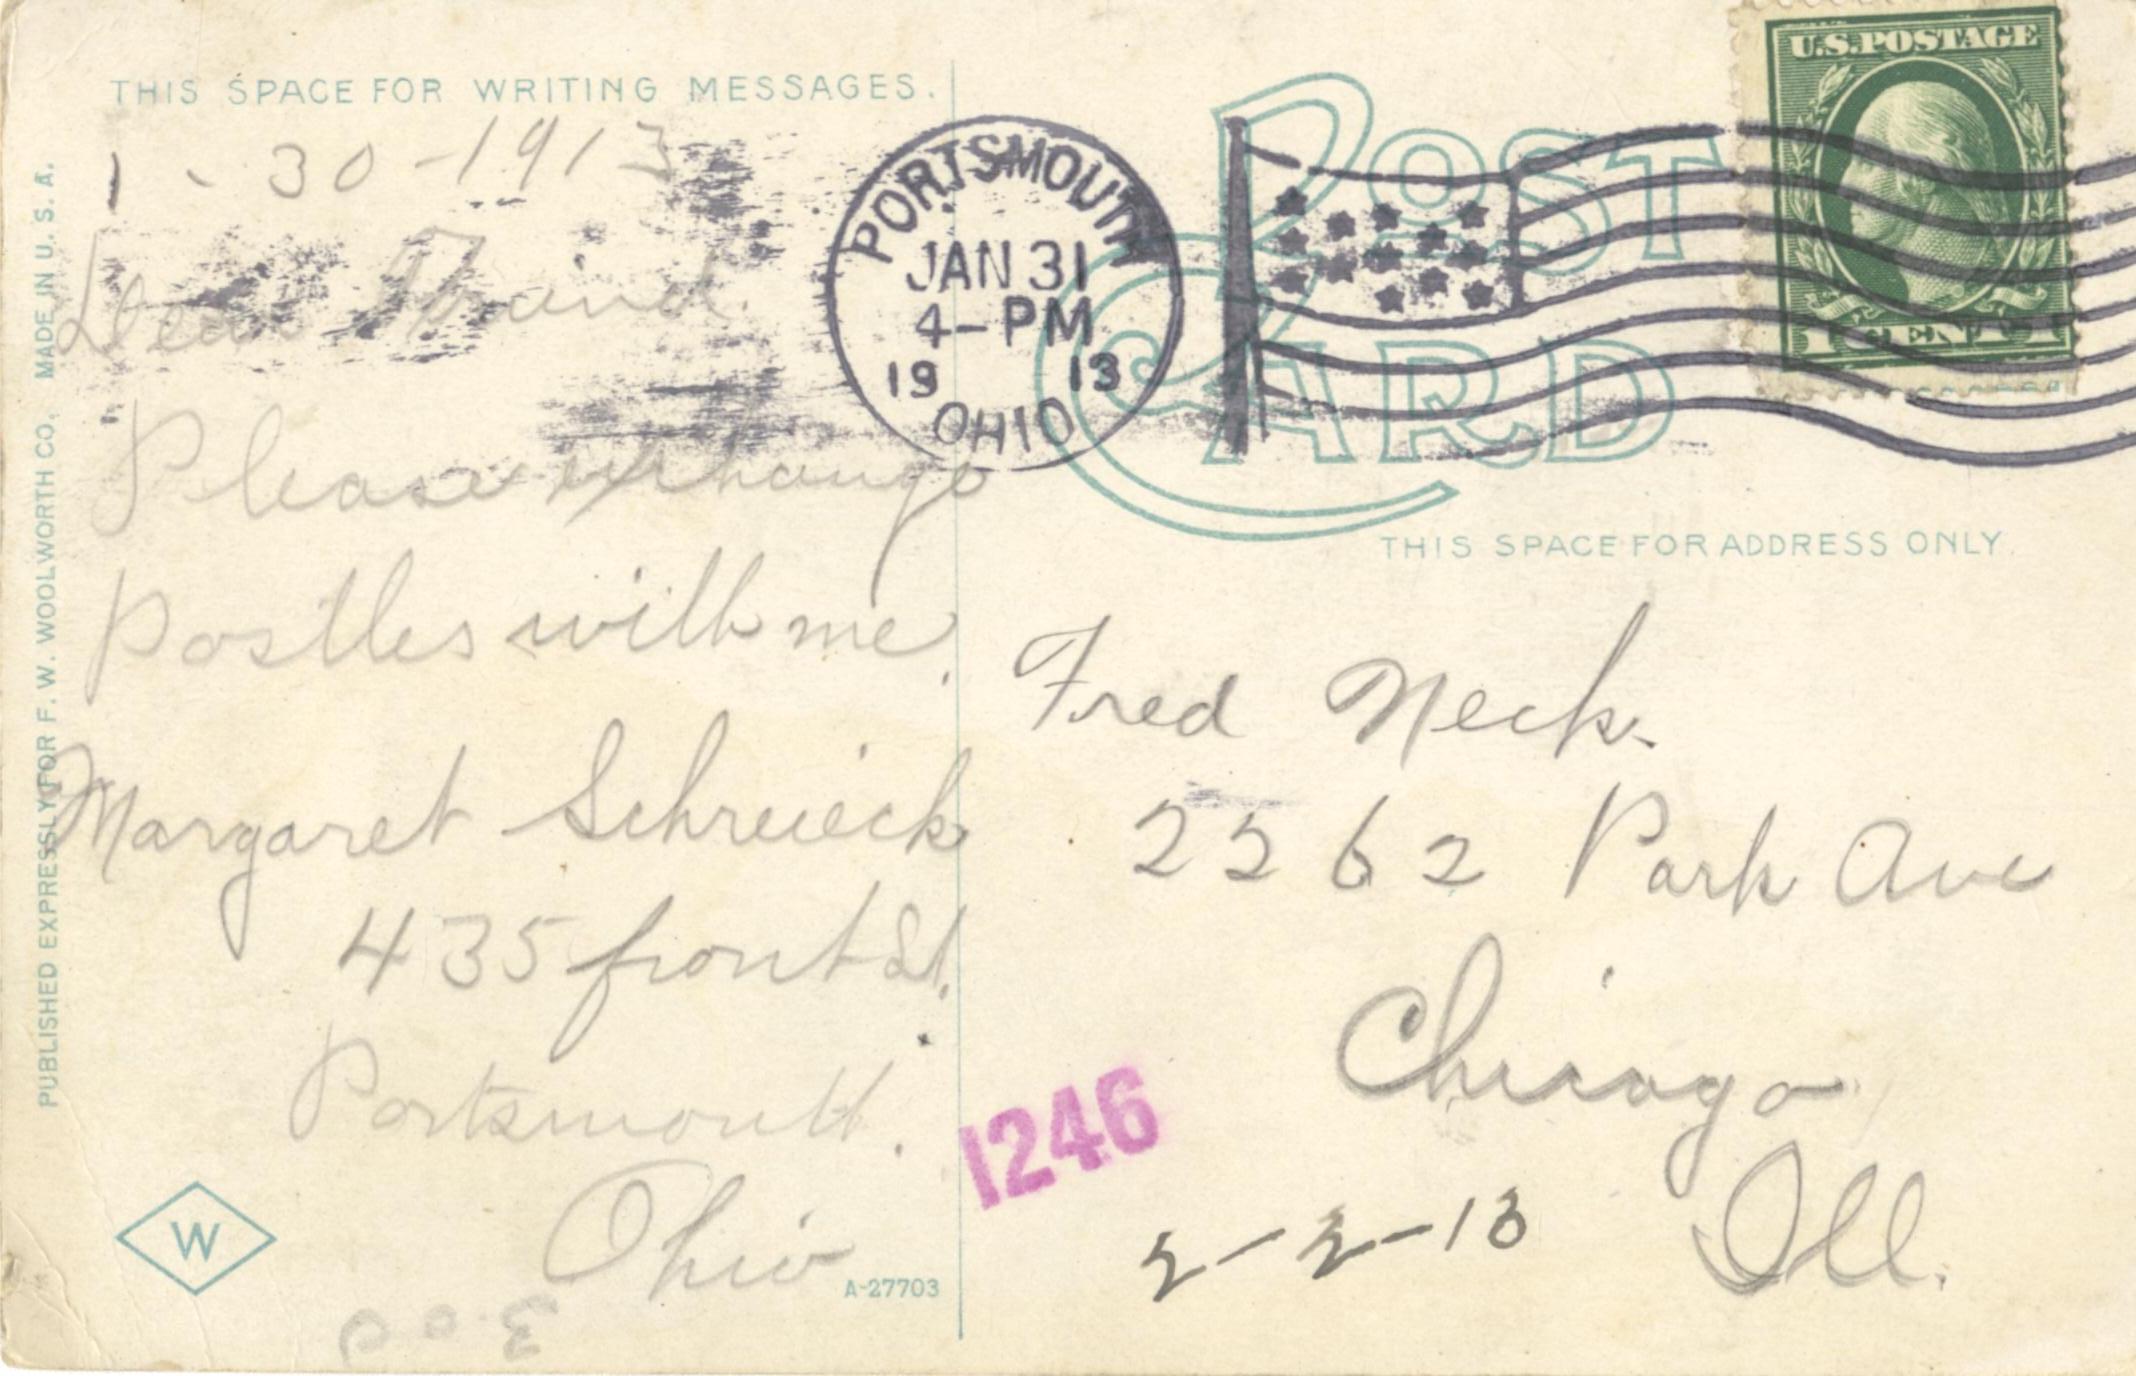 THIS SPACE FOR WRITING MESSAGES.
1-30-1913
Dear Fraind
Please exchange
Postles with me.
Margaret Schreieck
435 front St.
Portsmouth.
Ohio
A-27703
W
PUBLISHED EXPRESSLY FOR F. W. WOOLWORTH CO. MADE IN U. S. A.
PORTSMOUTH
JAN 31
4-PM
19 13
OHIO
POST CARD
U.S.POSTAGE
THIS SPACE FOR ADDRESS ONLY.
Fred Neck.
2262 Park Ave
Chicago
Ill.
1246
2-2-13